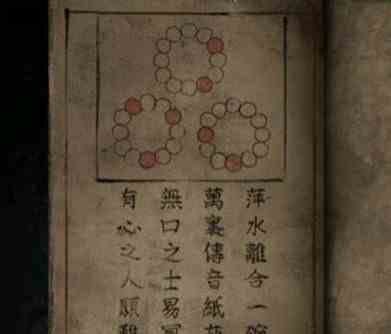 萍水離合一
萬裏傳音紙
無口之士易
有心之人願